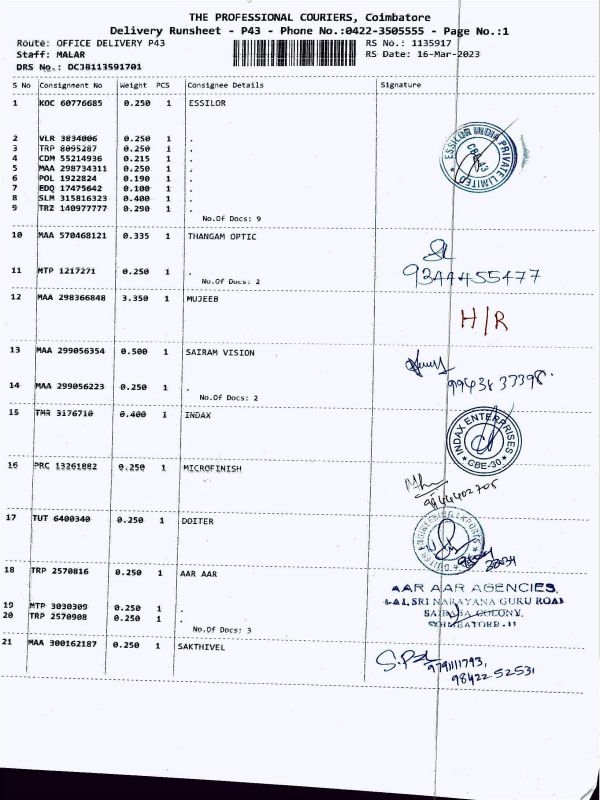 THE PROFESSIONAL COURIERS, Coimbatore
Delivery Runsheet - P43 - Phone No.:0422-3505555 - Page No.:1
Route: OFFICE DELIVERY P43 RS No.: 1135917
Staff: MALAR RS Date: 16-Mar-2023
DRS No.: DCJB113591701
S No Consignment No Weight PCS Consignee Details Signature
1 KOC 60776685 0.250 1 ESSILOR
ESSILOR INDIA PRIVATE LIMITED
CBE-43
2 VLR 3834006 0.250 1 .
3 TRP 8095287 0.250 1 .
4 CDM 55214936 0.215 1 .
5 MAA 298734311 0.250 1 .
6 POL 1922824 0.190 1 .
7 EDQ 17475642 0.100 1 .
8 SLM 315816323 0.400 1 .
9 TRZ 140977777 0.290 1 .
No.Of Docs: 9
10 MAA 570468121 0.335 1 THANGAM OPTIC
9344455477
11 MTP 1217271 0.250 1 .
No.Of Docs: 2
12 MAA 298366848 3.350 1 MUJEEB
H/R
13 MAA 299056354 0.500 1 SAIRAM VISION
14 MAA 299056223 0.250 1 .
No.Of Docs: 2
15 TMR 3176710 0.400 1 INDAX
INDAX ENTERPRISES
CBE-30
16 PRC 13261882 0.250 1 MICROFINISH
9844402705
17 TUT 6400340 0.250 1 DOITER
18 TRP 2570816 0.250 1 AAR AAR
AAR AAR AGENCIES,
SRI NARAYANA GURU ROAD
SAIBABA COLONY,
COIMBATORE-11
19 MTP 3030309 0.250 1 .
20 TRP 2570908 0.250 1 .
No.Of Docs: 3
21 MAA 300162187 0.250 1 SAKTHIVEL
9791111793,
98422 52531